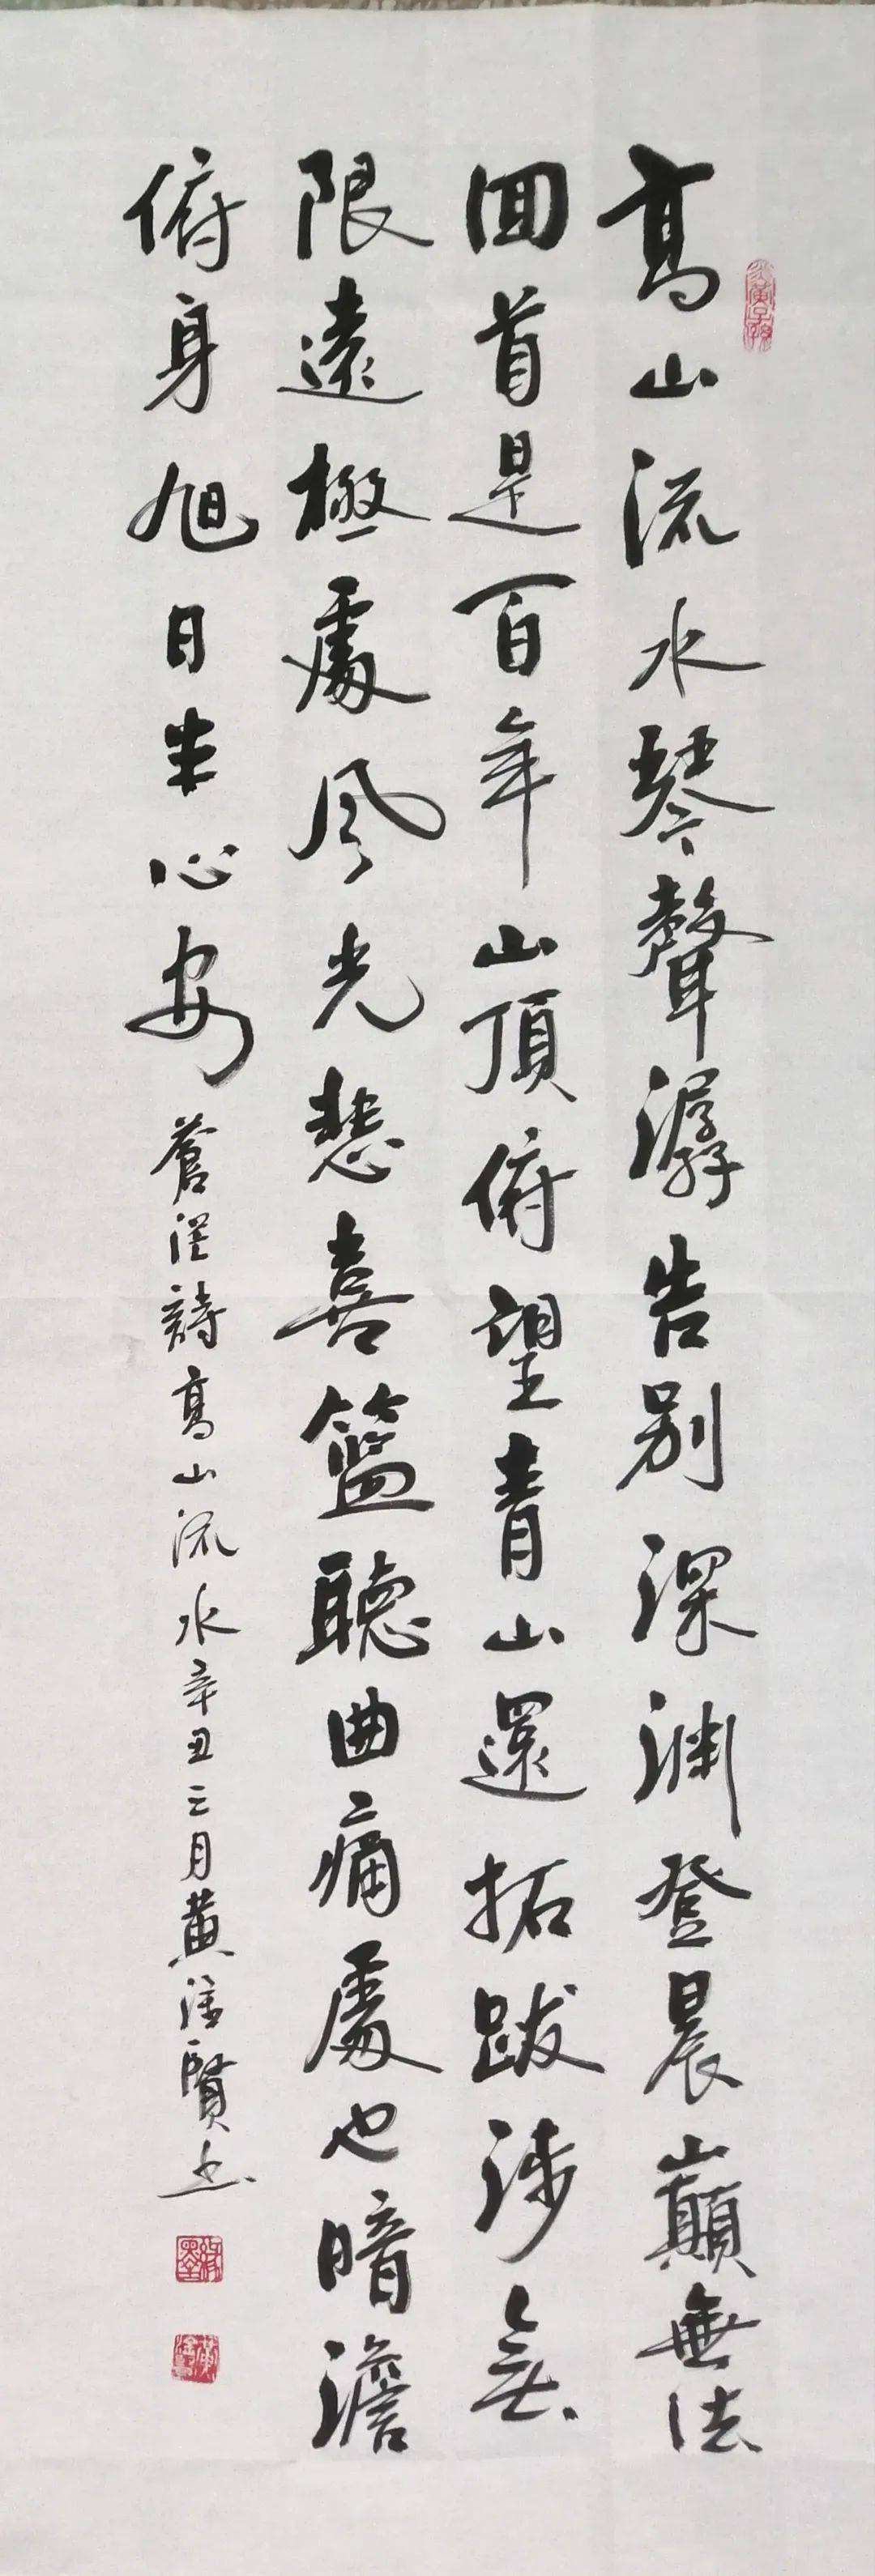 高山流水琴聲潺告別深渊登晨巔無法
回首是百年山頂俯望青山還拓跋涉無
限遠極處风光悲喜籃聽曲痛處也暗澹
俯身旭日半心安
蒼茫詩高山流水辛丑三月黄清賢书